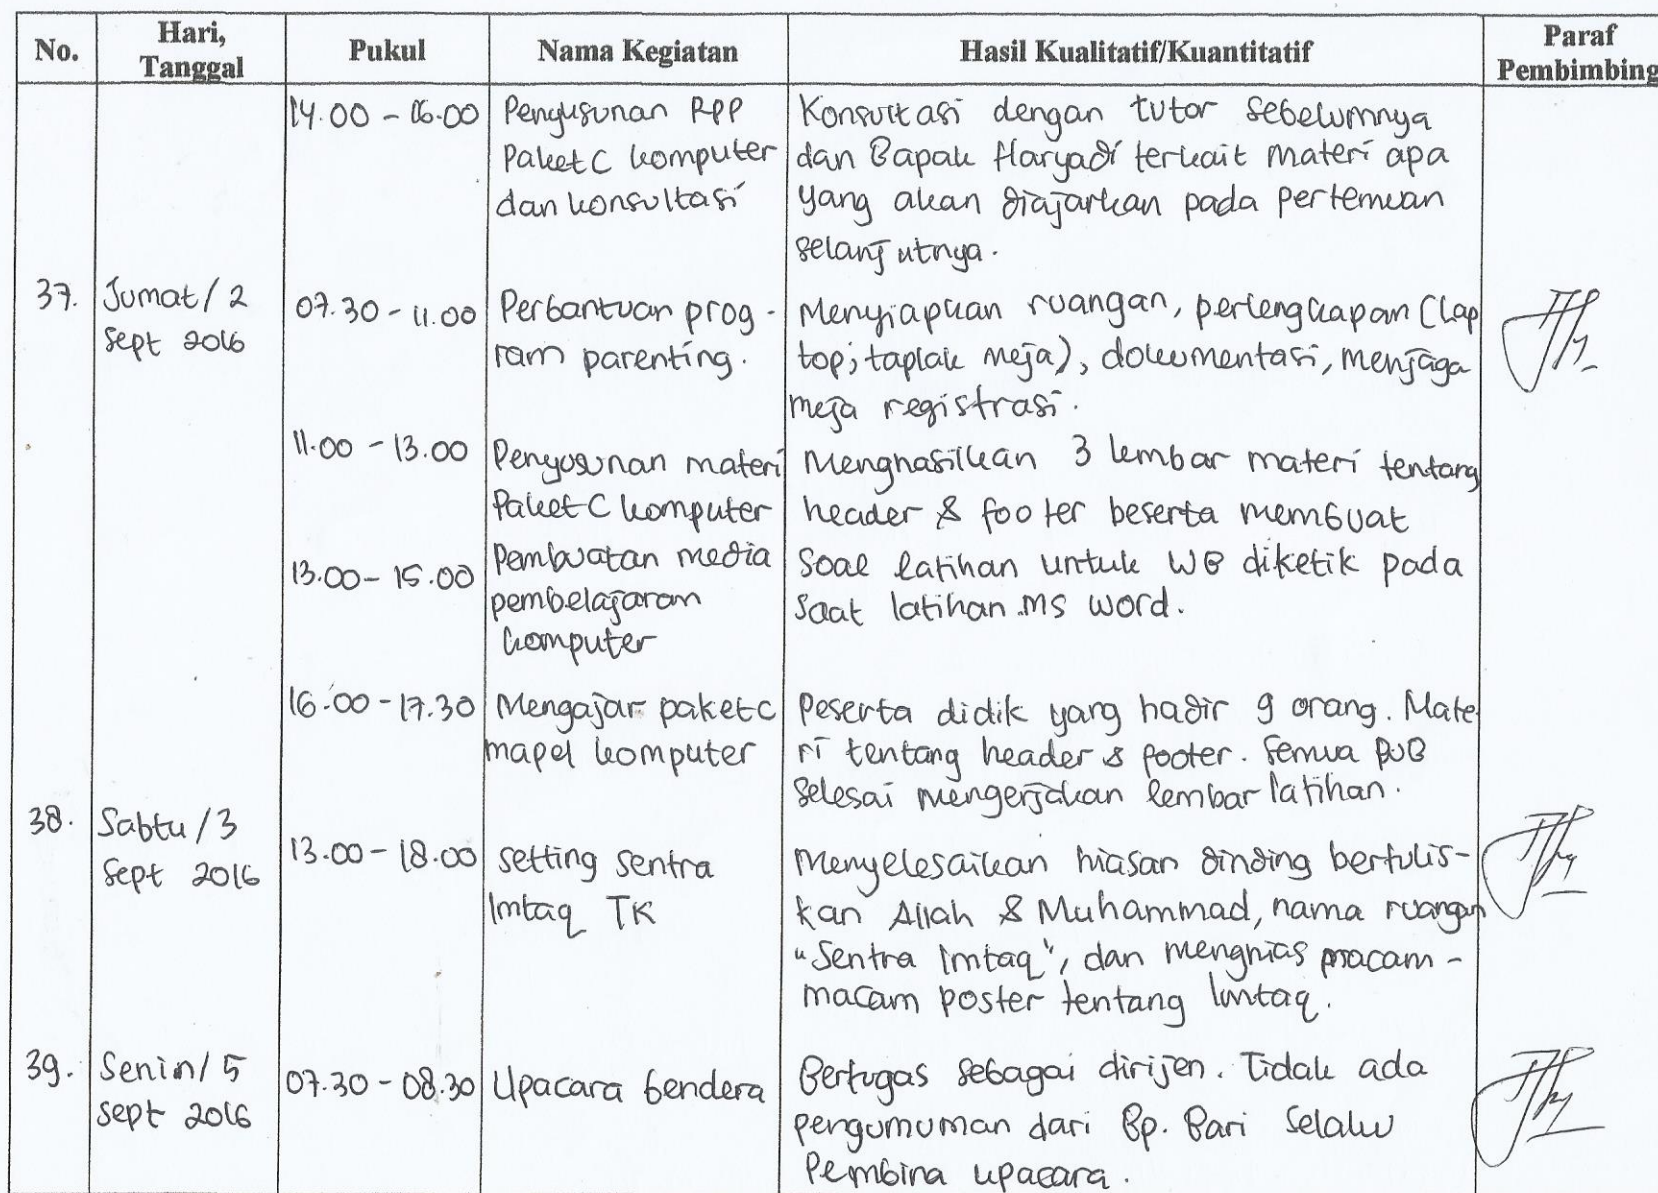 No. Hari, Tanggal Pukul Nama Kegiatan Hasil Kualitatif/Kuantitatif Paraf Pembimbing
14.00 - 16.00
Penyusunan RPP
Paket C komputer
dan konsultasi
Konsultasi dengan tutor sebelumnya
dan Bapak Haryadi terkait materi apa
yang akan diajarkan pada pertemuan
selanjutnya.
37.
Jumat / 2
Sept 2016
07.30 - 11.00
Perbantuan prog -
ram parenting.
Menyiapkan ruangan, perlengkapan (lap
top; taplak meja), dokumentasi, menjaga
meja registrasi.
11.00 - 13.00
Penyusunan materi
Paket C komputer
Menghasilkan 3 lembar materi tentang
header & footer beserta membuat
13.00 - 15.00
Pembuatan media
pembelajaran
komputer
Soal latihan untuk WB diketik pada
saat latihan ms word.
16.00 - 17.30
Mengajar paket c
mapel komputer
Peserta didik yang hadir 9 orang. Mate
ri tentang header & footer. Semua
selesai mengerjakan lembar latihan.
38.
Sabtu / 3
Sept 2016
13.00 - 18.00
setting sentra
Imtaq TK
Menyelesaikan hiasan dinding bertulis -
kan Allah & Muhammad, nama ruangan
"Sentra Imtaq", dan menghias macam -
macam poster tentang Imtaq.
39.
Senin / 5
Sept 2016
07.30 - 08.30
Upacara bendera
Bertugas sebagai dirijen. Tidak ada
pengumuman dari Bp. Bari Selaku
Pembina upacara.